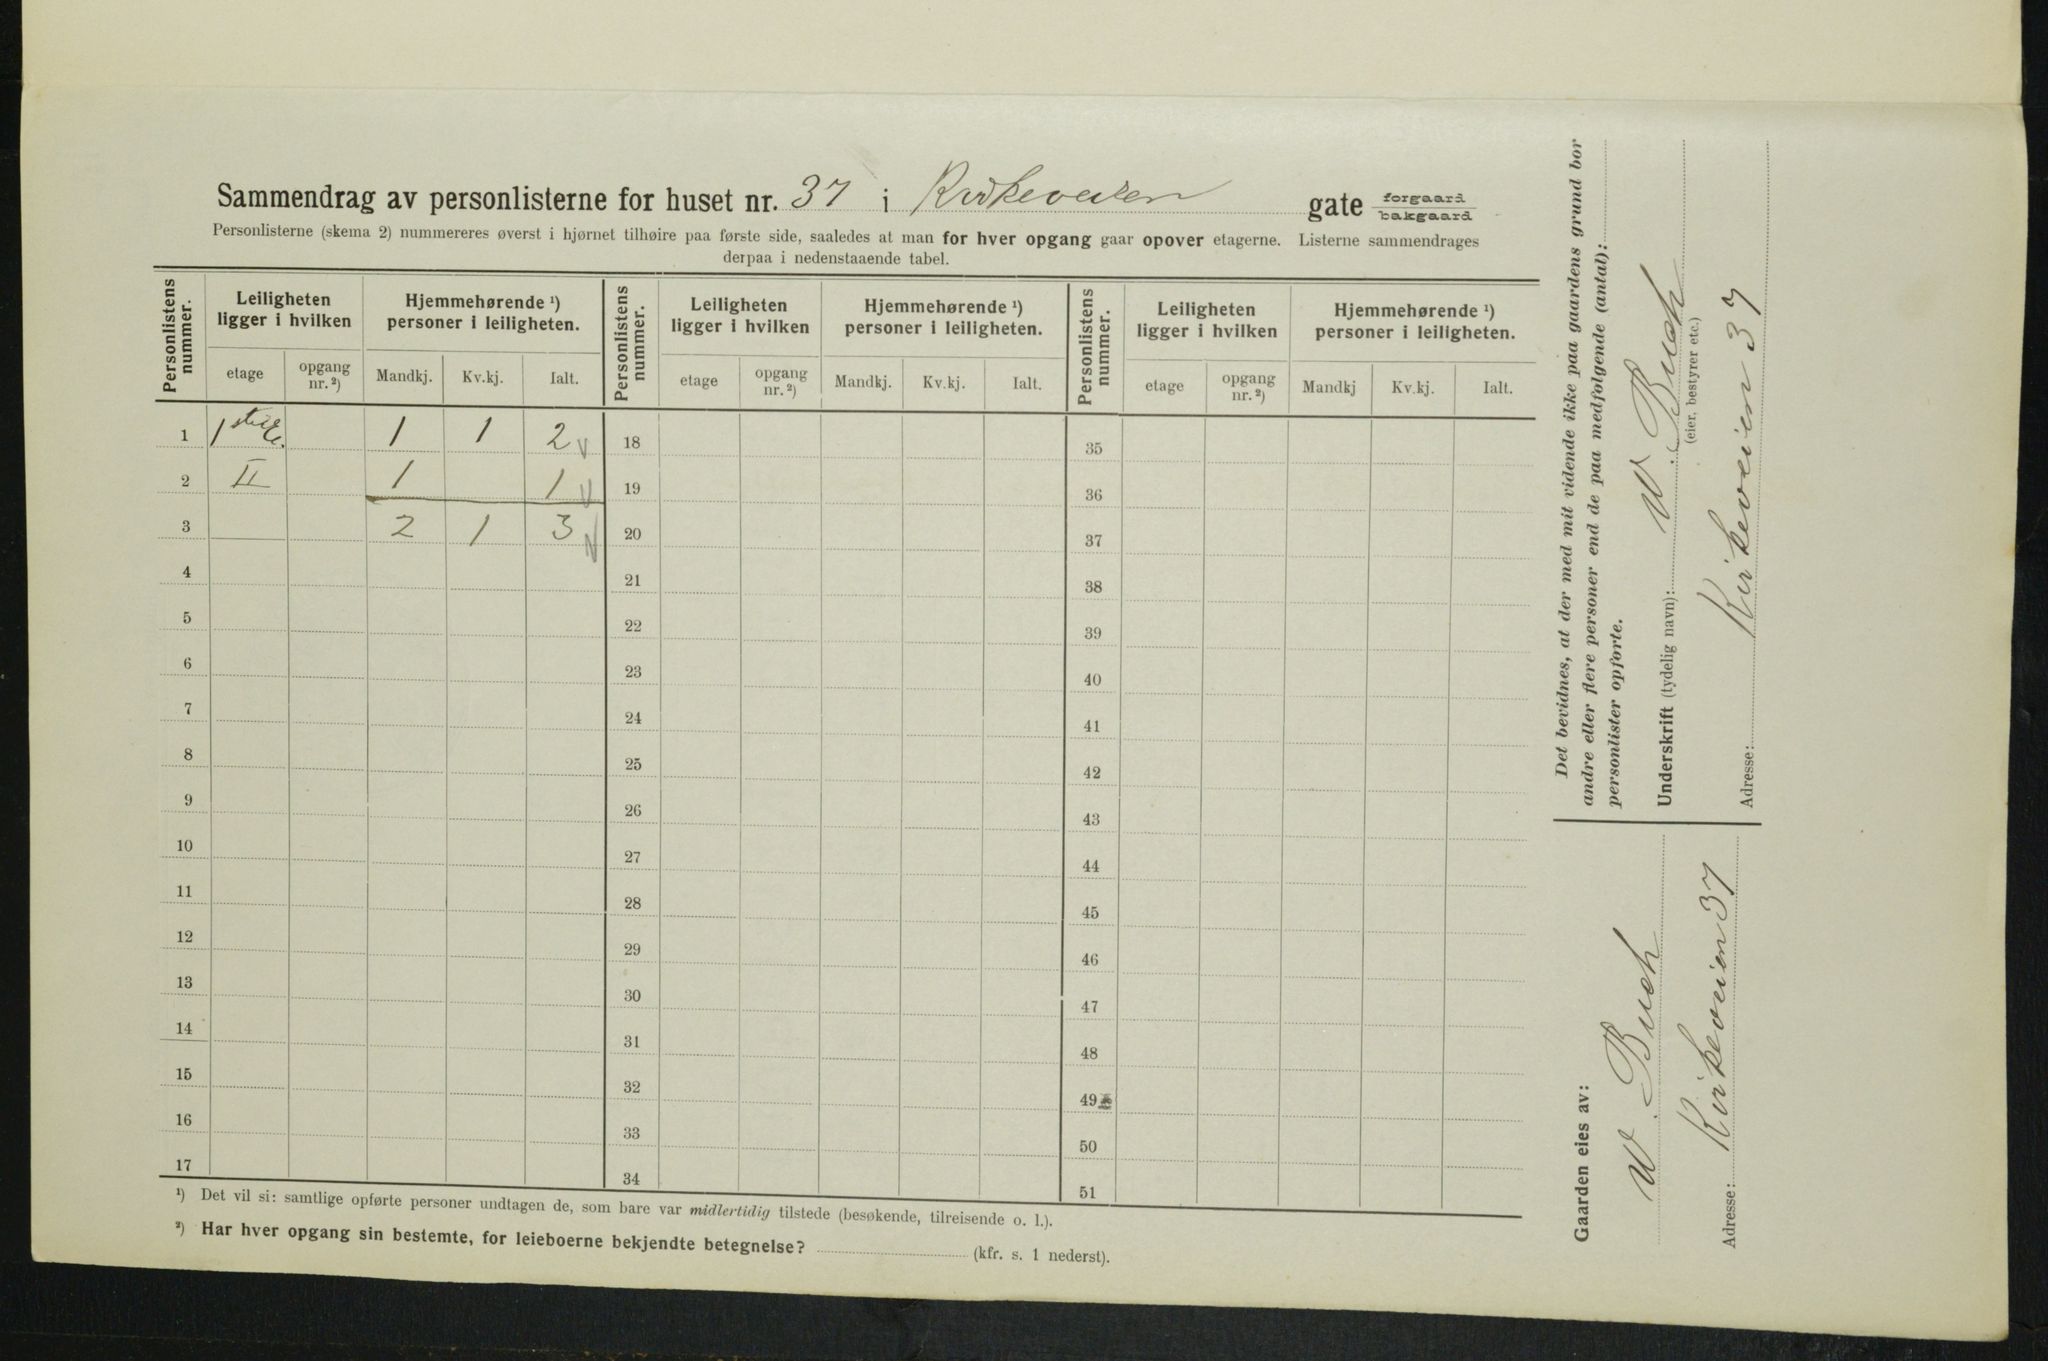 Sammendrag av personlisterne for huset nr. 37 i Kirkeveien gate forgaard bakgaard
Personlisterne (skema 2) nummereres øverst i hjørnet tilhøire paa første side, saaledes at man for hver opgang gaar opover etagerne. Listerne sammendrages
derpaa i nedenstaaende tabel.
Personlistens nummer. Leiligheten ligger i hvilken Hjemmehørende ¹) personer i leiligheten. Personlistens nummer. Leiligheten ligger i hvilken Hjemmehørende ¹) personer i leiligheten. Personlistens nummer. Leiligheten ligger i hvilken Hjemmehørende ¹) personer i leiligheten.
etage opgang nr. ²) Mandkj. Kv.kj. Ialt. etage opgang nr. ²) Mandkj. Kv.kj. Ialt. etage opgang nr. ²) Mandkj Kv.kj. Ialt.
1 1 1 1 2 18 35
2 II 1 1 19 36
3 2 1 3 20 37
4 21 38
5 22 39
6 23 40
7 24 41
8 25 42
9 26 43
10 27 44
11 28 45
12 29 46
13 30 47
14 31 48
15 32 49
16 33 50
17 34 51
¹) Det vil si: samtlige opførte personer undtagen de, som bare var midlertidig tilstede (besøkende, tilreisende o. l.).
²) Har hver opgang sin bestemte, for leieboerne bekjendte betegnelse? (kfr. s. 1 nederst).
Det bevidnes, at der med mit vidende ikke paa gaardens grund bor
andre eller flere personer end de paa medfølgende (antal):
personlister opførte.
Underskrift (tydelig navn): W. Buch
(eier, bestyrer etc.)
Adresse: Kirkeveien 37
Gaarden eies av:
W. Buch
Adresse: Kirkeveien 37